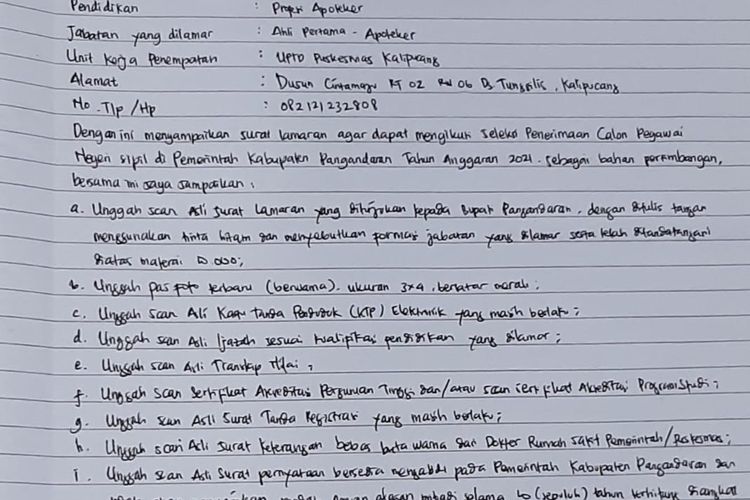 Pendidikan : Profesi Apoteker
Jabatan yang dilamar : Ahli Pertama - Apoteker
Unit Kerja Penempatan : UPTD Puskesmas Kalipucang
Alamat : Dusun RT 02 RW 06 Ds Tunggilis, Kalipucang
No. Tlp / Hp : 082121232808
Dengan ini menyampaikan surat lamaran agar dapat mengikuti seleksi Penerimaan Calon Pegawai
Negeri Sipil di Pemerintah Kabupaten Pangandaran Tahun Anggaran 2021. Sebagai bahan pertimbangan,
bersama ini saya sampaikan :
a. Unggah scan Asli Surat Lamaran yang ditujukan kepada Bupati Pangandaran, dengan ditulis tangan
menggunakan tinta hitam dan menyebutkan formasi jabatan yang dilamar serta telah ditandatangani
diatas materai 10.000;
b. Unggah pas foto terbaru (berwarna). ukuran 3x4, berlatar merah;
c. Unggah scan Asli Kartu Tanda Penduduk (KTP) Elektronik yang masih berlaku;
d. Unggah scan Asli Ijazah sesuai kualifikasi pendidikan yang dilamar;
e. Unggah scan Asli Transkip Nilai;
f. Unggah scan Sertifikat Akreditasi Perguruan Tinggi dan/atau scan sertifikat Akreditasi Program Studi;
g. Unggah scan Asli Surat Tanda Registrasi yang masih berlaku;
h. Unggah scan Asli Surat keterangan bebas buta warna dari Dokter Rumah Sakit Pemerintah/Puskesmas;
i. Unggah scan Asli Surat pernyataan bersedia mengabdi pada Pemerintah Kabupaten Pangandaran dan
alasan pribadi selama 10 (sepuluh) tahun terhitung